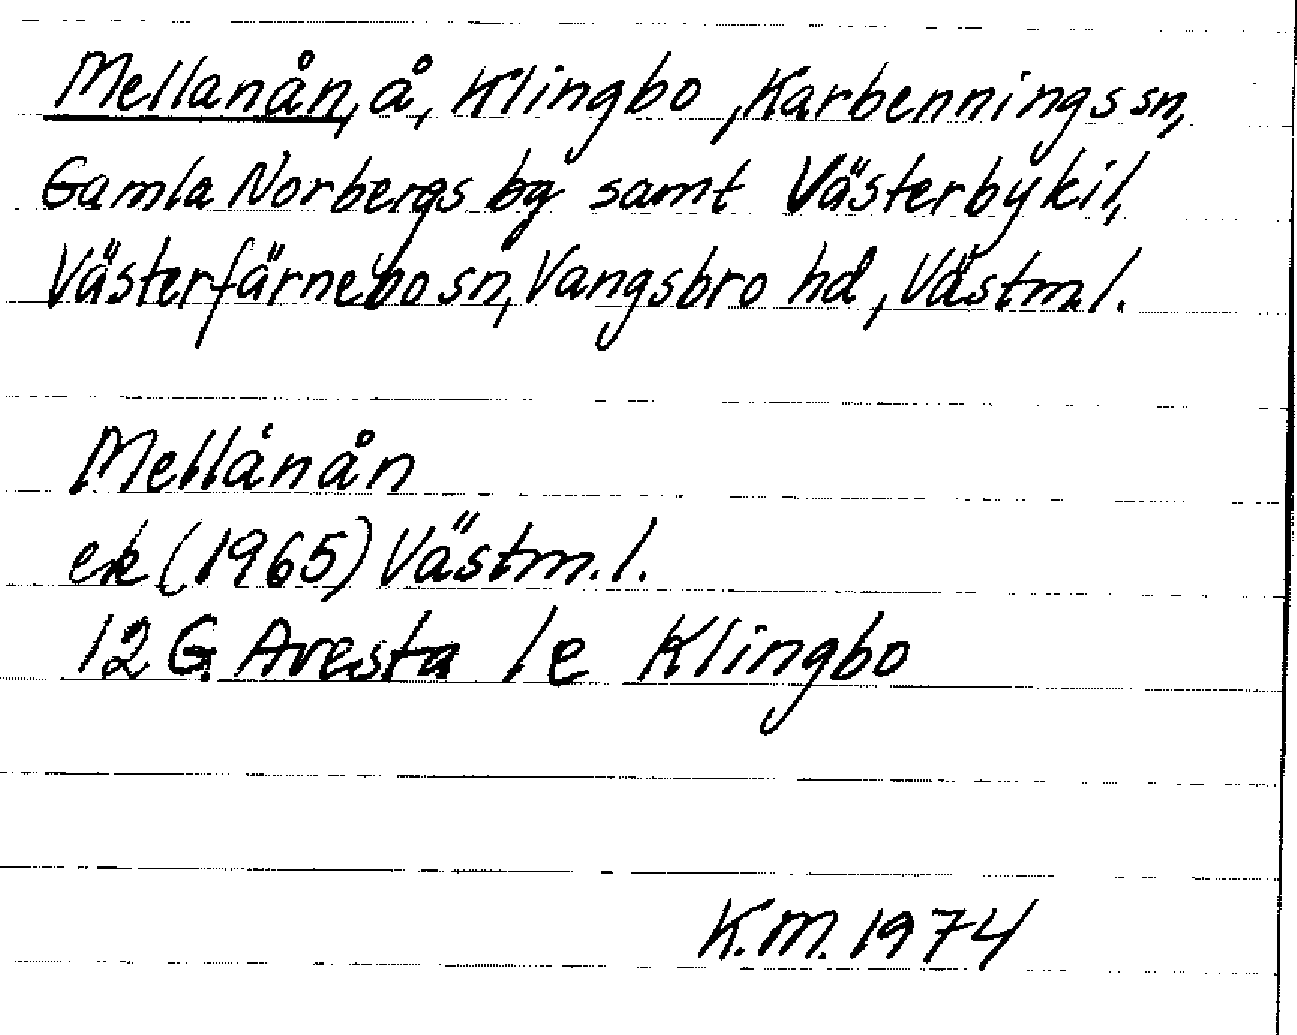 Mellanån, å, Klingbo, Karbennings sn,
Gamla Norbergs bg samt Västerbykil,
Västerfärnebo sn, Vangsbro hd, Västm.l.
Mellanån
ek (1965) Västm.l.
12 G Avesta 1e Klingbo
K.M. 1974